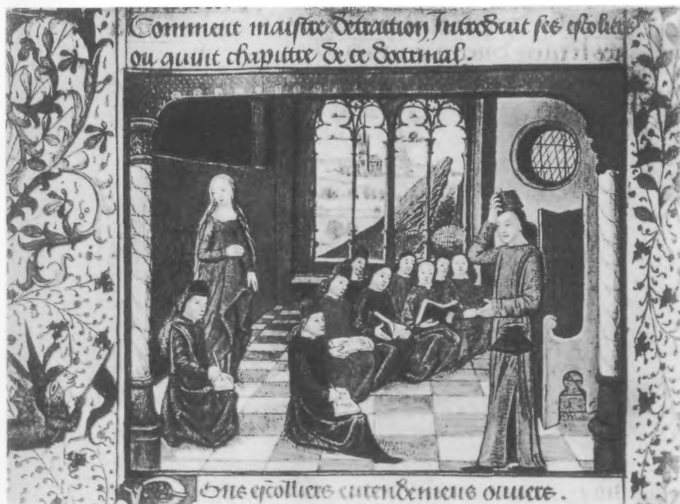 Comment maistre detraction Introduit ses escoliers
ou quint chapittre de ce doctrinal.
Ons escolliers entendemens ouuers